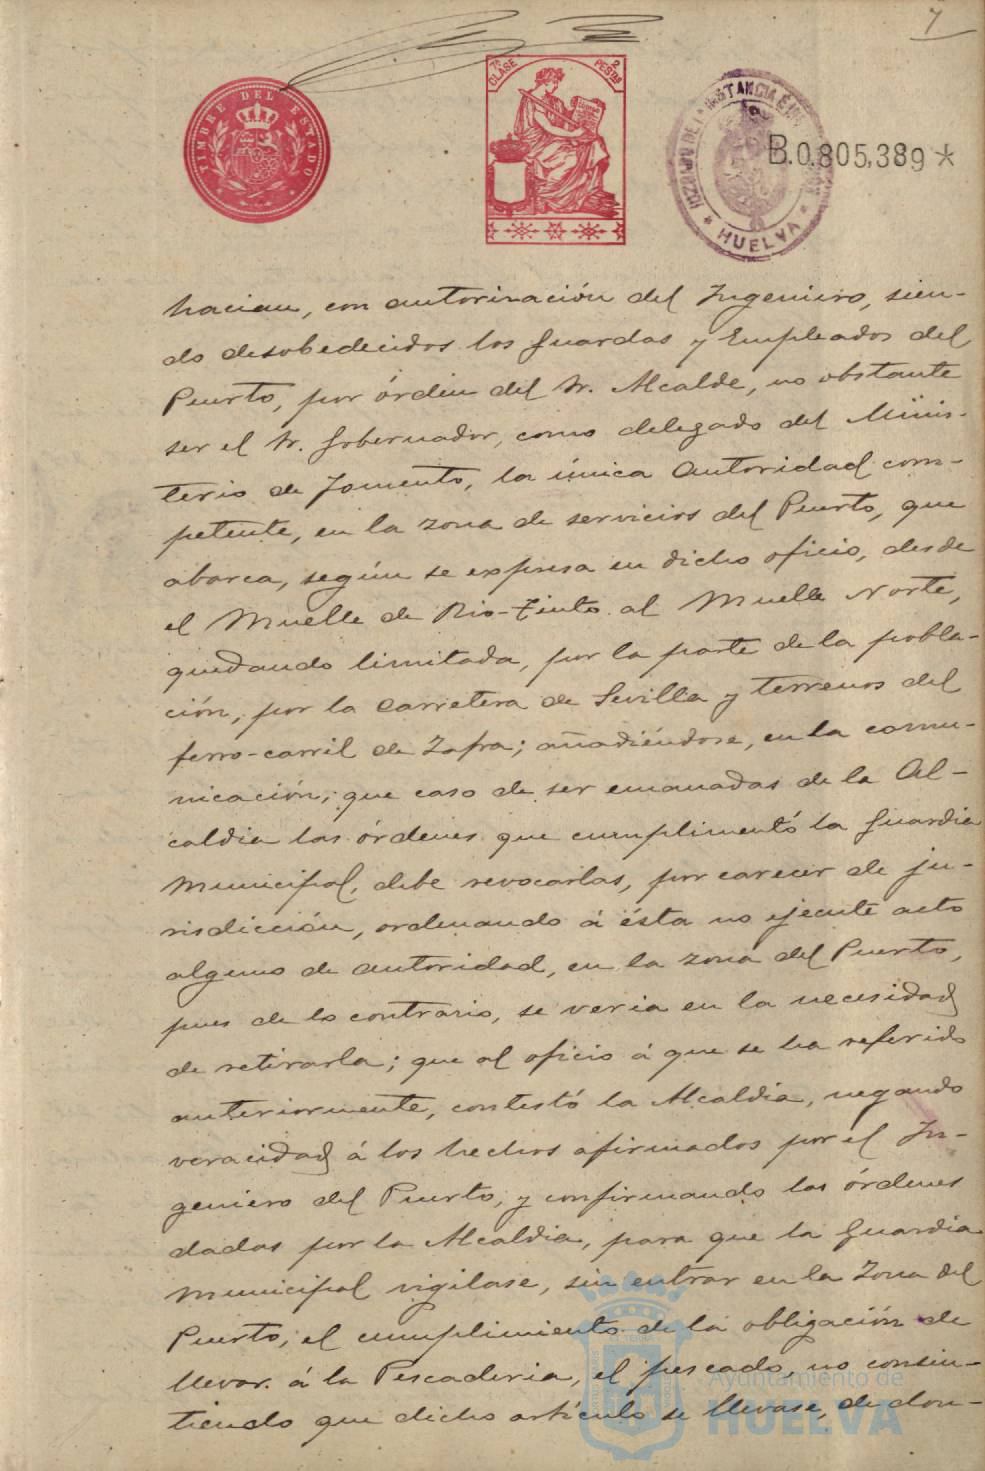 7
TIMBRE DEL ESTADO
7ª CLASE
2 PESTAS
JUZGADO DE 1ª INSTANCIA É
* HUELVA *
B.0.805,389 *
hacian, con autorización del Ingeniero, sien-
do desobedecidos los Guardas y Empleados del
Puerto, por órden del Sr. Alcalde, no obstante
ser el Sr. Gobernador, como delegado del Minis-
terio de Fomento, la única autoridad com-
petente, en la zona de servicios del Puerto, que
abarca, según se expresa en dicho oficio, desde
el Muelle de Rio-Tinto al Muelle Norte,
quedando limitada, por la parte de la pobla-
ción, por la Carretera de Sevilla y terrenos del
ferro-carril de Zafra; añadiéndose, en la comu-
nicación, que caso de ser emanadas de la Al-
caldia las órdenes que cumplimentó la Guardia
Municipal, debe revocarlas, por carecer de ju-
risdicción, ordenando á ésta no ejecute acto
alguno de autoridad, en la zona del Puerto,
pues de lo contrario, se veria en la necesidad
de retirarla; que al oficio á que se ha referido
anteriormente, contestó la Alcaldia, negando
veracidad á los hechos afirmados por el In-
geniero del Puerto, y confirmando las órdenes
dadas por la Alcaldia, para que la Guardia
Municipal vigilase, sin entrar en la Zona del
Puerto, el cumplimiento de la obligación de
llevar á la Pescaderia, el pescado, no consin-
tiendo que dicho artículo se llevase, de don-
Ayuntamiento de
HUELVA